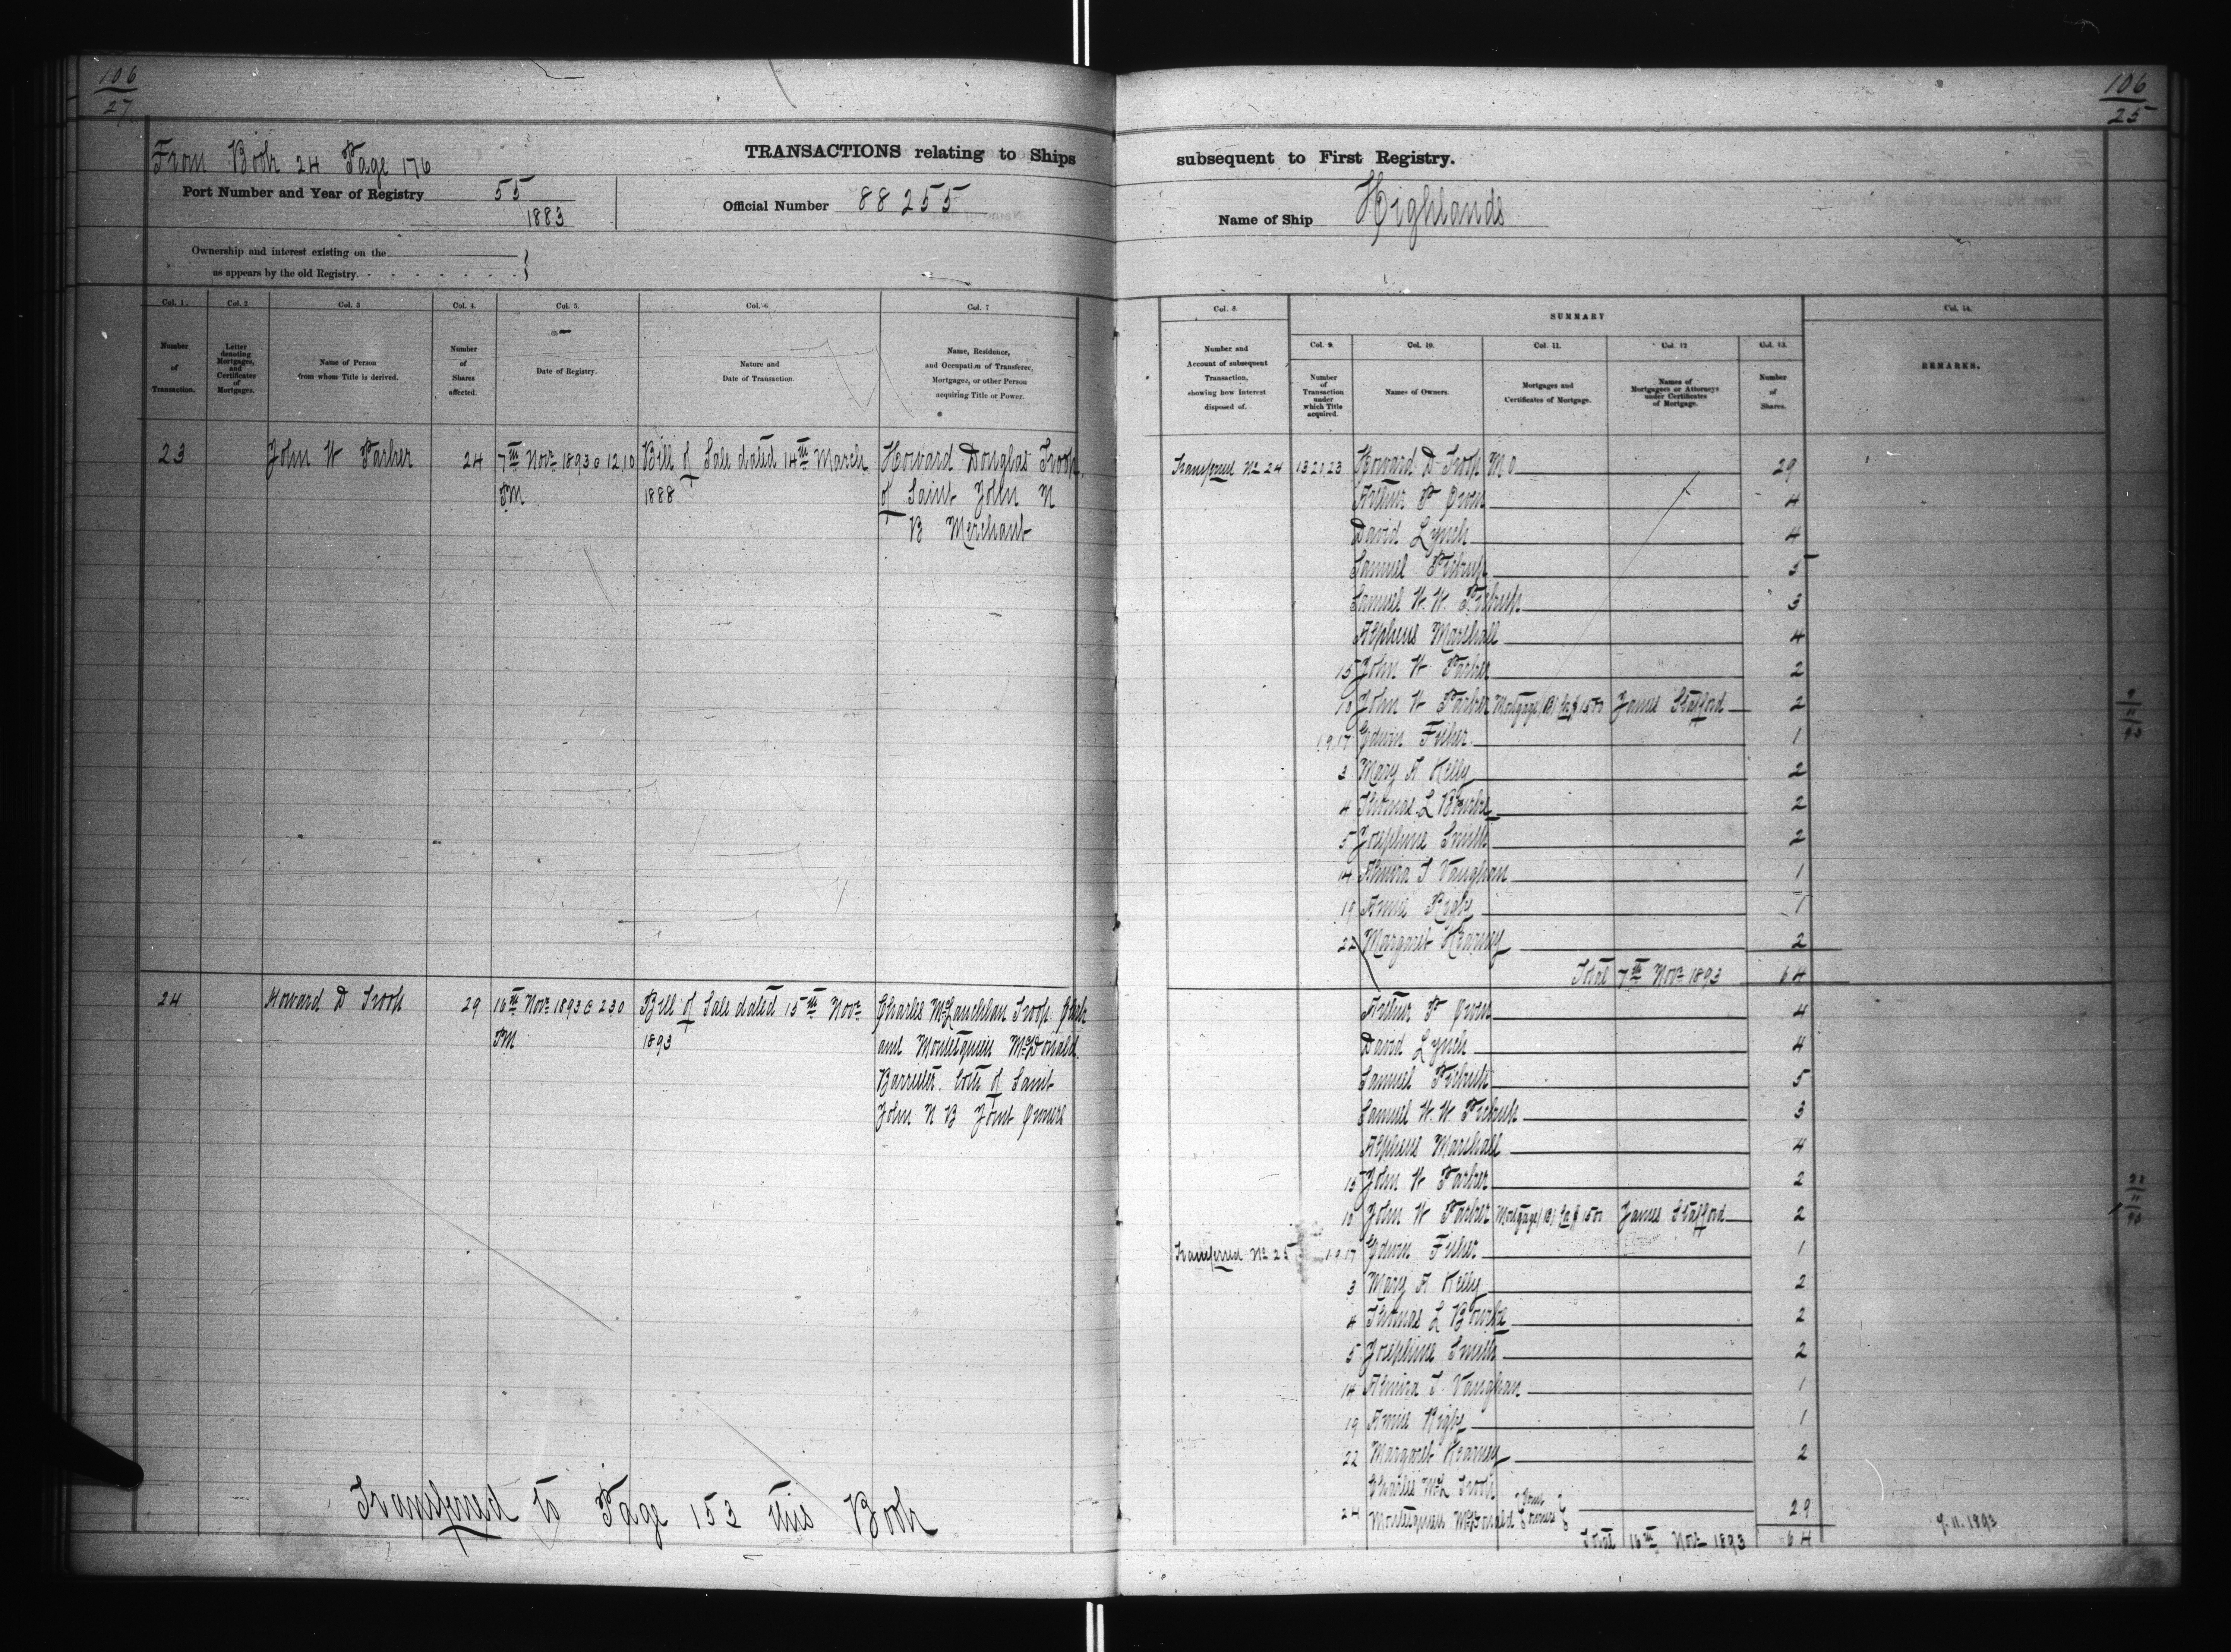 106
27
From Book 24 Page 176
TRANSACTIONS relating to Ships
Port Number and Year of Registry 55
1883
Official Number 88255
Ownership and interest existing on the
as appears by the old Registry.
Col. 1.
Number
of
Transaction.
Col. 2
Letter
denoting
Mortgages,
and
Certificates
of
Mortgages.
Col. 3
Name of Person
from whom Title is derived.
Col. 4.
Number
of
Shares
affected.
Col. 5.
Date of Registry.
Col. 6.
Nature and
Date of Transaction.
Col. 7
Name, Residence,
and Occupation of Transferee,
Mortgagee, or other Person
acquiring Title or Power.
23 John W Parker 24 7th Novr 1893 @ 12.10 Bill of Sale dated 14th March Howard Douglas Troop
PM 1888 of Saint John N
B Merchant
24 Howard D Troop 29 16th Novr 1893 @ 2.30 Bill of Sale dated 15th Novr Charles McLauchlan Troop Clerk
PM 1893 and Montesquieu McDonald
Barrister both of Saint
John N B Joint Owners
Transferred to Page 153 this Book
106
25
subsequent to First Registry.
Name of Ship Highlands
Col. 8
Number and
Account of subsequent
Transaction,
showing how Interest
disposed of.
SUMMARY
Col. 9.
Number
of
Transaction
under
which Title
acquired.
Col. 10.
Names of Owners.
Col. 11.
Mortgages and
Certificates of Mortgage.
Col. 12
Names of
Mortgagees or Attorneys
under Certificates
of Mortgage.
Col. 13.
Number
of
Shares.
Col. 14.
REMARKS.
Transferred No 24 13 21 23 Howard D Troop M.O 29
Arthur P 4
David Lynch 4
Samuel 5
Samuel W. W. 3
Alpheus Marshall 4
15 John W Parker 2
10 John W Parker Mortgage (B) James Stafford 2
1.9.17 Edwin Fisher 1
3 Mary A Kelly 2
4 Thomas L Bourke 2
5 Josephine Smith 2
14 Almira T Vaughan 1
19 Annie Rigby 1
22 Margaret Kearney 2
Total 7th Novr 1893 64
Arthur P 4
David Lynch 4
Samuel 5
Samuel W. W 3
Alpheus Marshall 4
15 John W Parker 2
10 John W Parker Mortgage (B) James Stafford 2
Transferred No 25 1.9.17 Edwin Fisher 1
3 Mary A Kelly 2
4 Thomas L Bourke 2
5 Josephine Smith 2
14 Almira T. Vaughan 1
19 Annie Rigby 1
22 Margaret Kearney 2
Charles McL Troop Joint
24 Montesquieu McDonald owners 29
Total 16th Novr 1893 64
7.11.1893